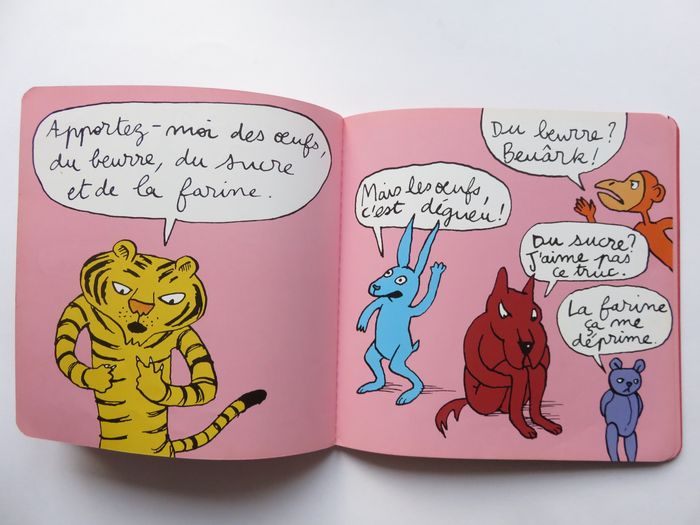 Apportez-moi des œufs,
du beurre, du sucre
et de la farine.
Mais les œufs,
c'est dégueu!
Du beurre?
Beuârk!
Du sucre?
J'aime pas
ce truc.
La farine
ça me
déprime.